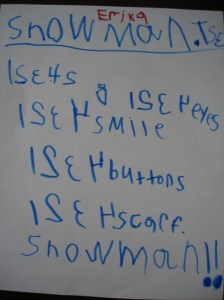 Erika
Snowman. I SE
I SE H eyes
I SE H smile
I SE H buttons
I SE H scarf.
Snowman!!